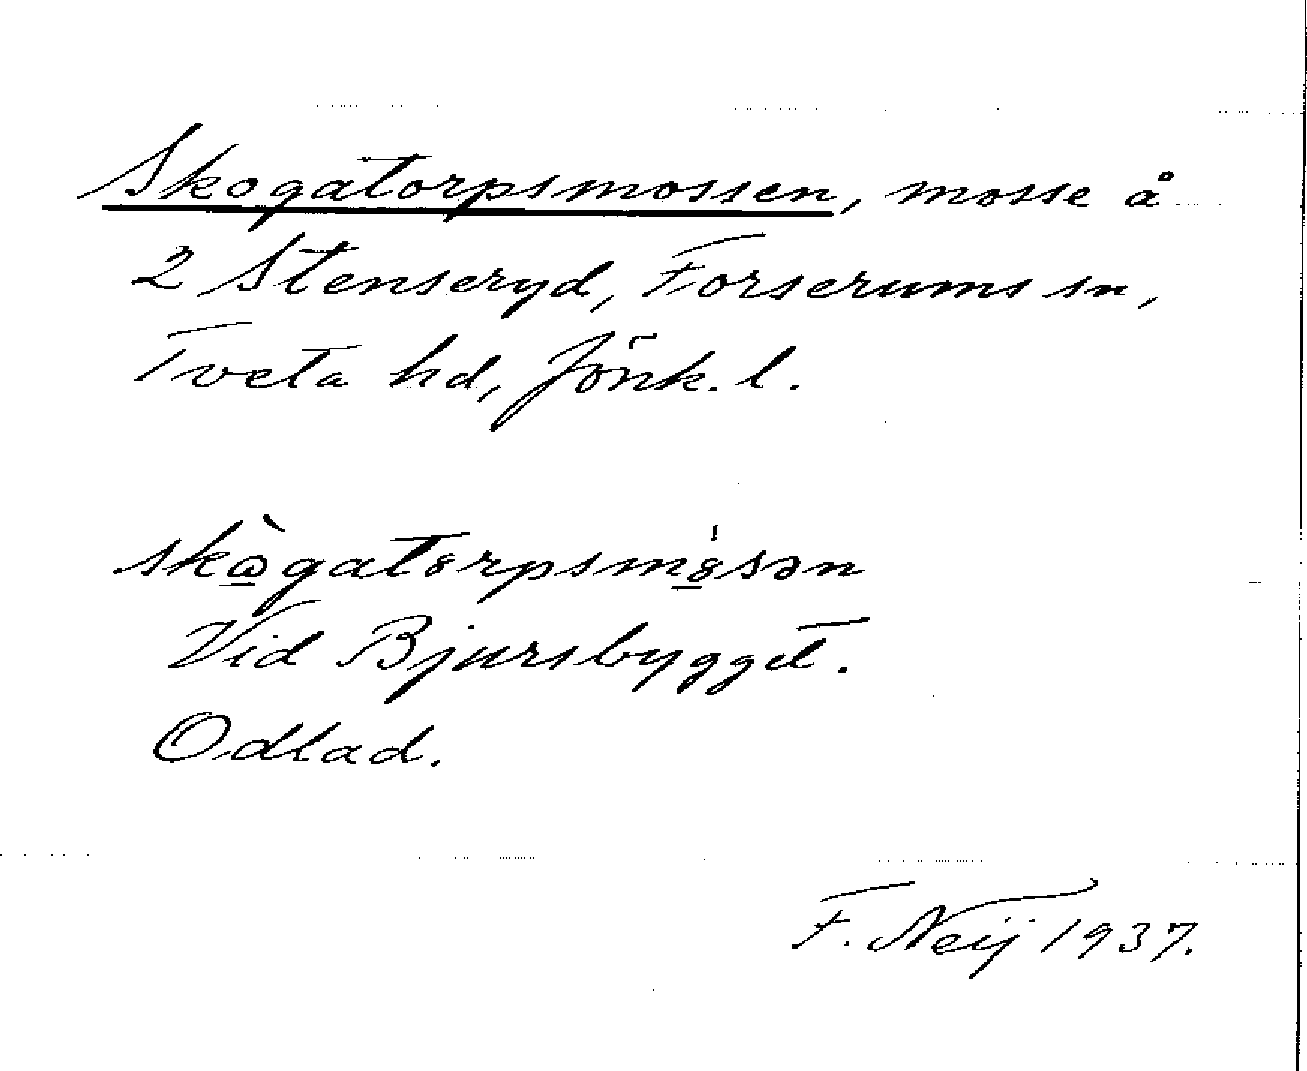 Skogatorpsmossen, mosse å
2 Stenseryd, Forserums sn,
Tveta hd, Jönk. l.
skὼgatȣrpsmȣ̀sən
Vid Bjursbygget.
Odlad.
F. Neij 1937.